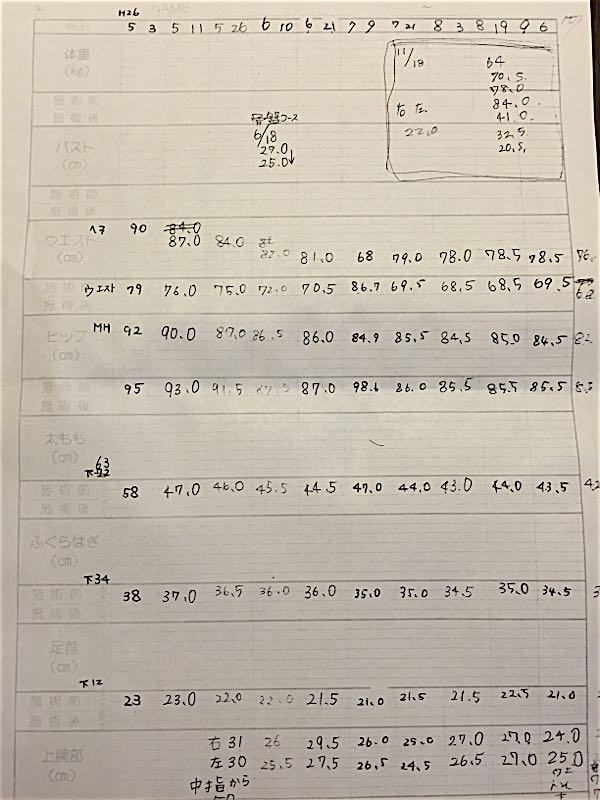 NAME
H26
5 3 5 11 5 26 6 10 6 21 7 9 7 21 8 3 8 19 9 6
体重
(kg)
11/18 64
70.5
78.0
施術前 右 左 84.0
施術後 41.0
骨盤コース
6/18 22.0 32.5
バスト 27.0 20.5
(cm) 25.0↓
施術前
施術後
ヘソ 90 84.0
ウエスト 87.0 84.0 82.0 81.0 68 79.0 78.0 78.5 78.5
(cm)
施術前 ウエスト 79 76.0 75.0 72.0 70.5 86.7 69.5 68.5 68.5 69.5
施術後 68
ヒップ MH 92 90.0 87.0 86.5 86.0 84.9 85.5 84.5 85.0 84.5
(cm)
施術前 95 93.0 91.5 87.5 87.0 98.6 86.0 85.5 85.5 85.5
施術後
太もも
(cm)
63
下
施術前 58 47.0 46.0 45.5 44.5 47.0 44.0 43.0 44.0 43.5
施術後
ふくらはぎ
(cm)
下34
施術前 38 37.0 36.5 36.0 36.0 35.0 35.0 34.5 35.0 34.5
施術後
足首
(cm)
下12
施術前 23 23.0 22.0 22.0 21.5 21.0 21.5 21.5 22.5 21.0
施術後
上腕部 右31 26 29.5 26.0 25.0 27.0 27.0 24.0
(cm) 左30 25.5 27.5 26.5 24.5 26.5 27.0 25.0
中指から